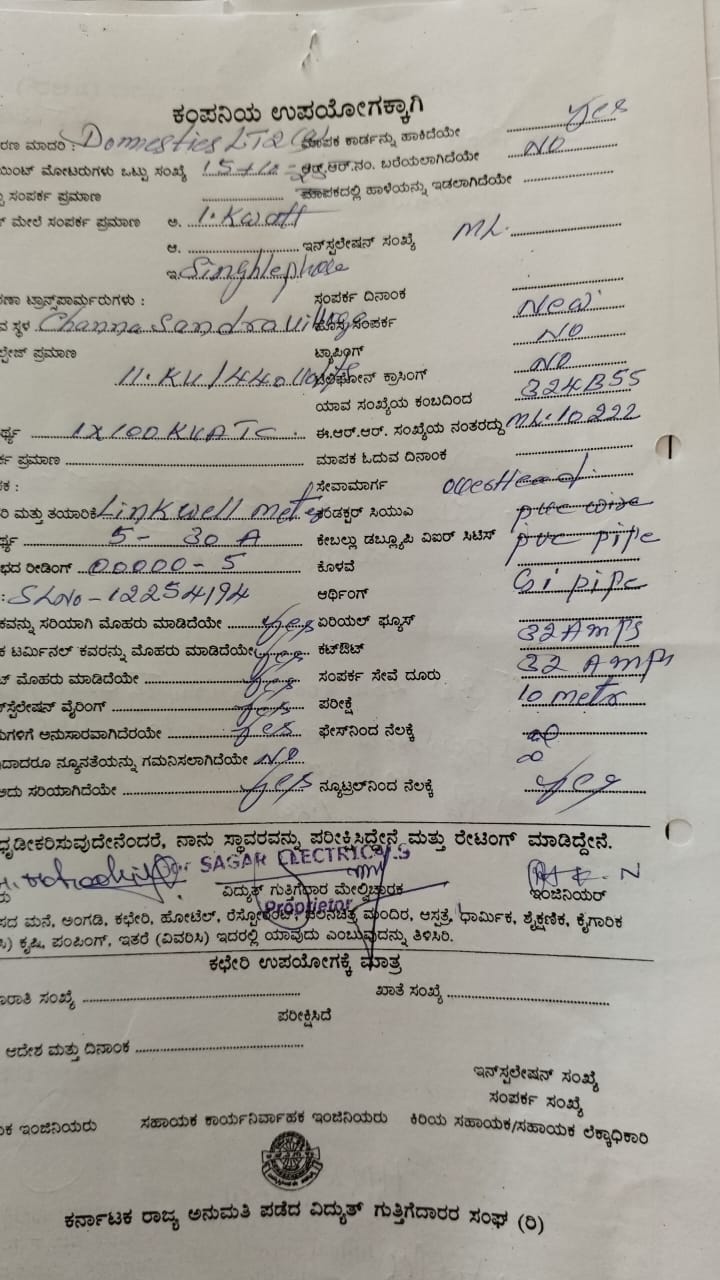 ಕಂಪನಿಯ ಉಪಯೋಗಕ್ಕಾಗಿ
ರಣ ಮಾದರಿ : Domestics LT2 ಮಾಪಕ ಕಾರ್ಡನ್ನು ಹಾಕಿದೆಯೇ yes
ಯಿಂಟ್ ಮೋಟರುಗಳು ಒಟ್ಟು ಸಂಖ್ಯೆ ಆರ್.ಆರ್.ನಂ. ಬರೆಯಲಾಗಿದೆಯೇ NO
ಸಂಪರ್ಕ ಪ್ರಮಾಣ ಮಾಪಕದಲ್ಲಿ ಹಾಳೆಯನ್ನು ಇಡಲಾಗಿದೆಯೇ
ಮೇಲೆ ಸಂಪರ್ಕ ಪ್ರಮಾಣ ಅ. 1. Kwatt
ಆ. ಇನ್‌ಸ್ಟಲೇಷನ್ ಸಂಖ್ಯೆ ML.
ಇ. Singhlephole
ಣಾ ಟ್ರಾನ್ಸ್‌ಪಾರ್ಮರುಗಳು : ಸಂಪರ್ಕ ದಿನಾಂಕ
ವ ಸ್ಥಳ Channa Sandra Village ಹೊಸ ಸಂಪರ್ಕ New
ಲ್ಟೇಜ್ ಪ್ರಮಾಣ ಟ್ಯಾಪಿಂಗ್ NO
11. KV / 440 Volts ಟೆಲಿಫೋನ್ ಕ್ರಾಸಿಂಗ್ NO
ಯಾವ ಸಂಖ್ಯೆಯ ಕಂಬದಿಂದ 324B55
ರ್ಥ್ಯ 1X100 KVA TC. ಈ.ಆರ್.ಆರ್. ಸಂಖ್ಯೆಯ ನಂತರದ್ದು ML.10222
ರ್ಕ ಪ್ರಮಾಣ ಮಾಪಕ ಓದುವ ದಿನಾಂಕ
ಕ : ಸೇವಾಮಾರ್ಗ OverHead
ರಿ ಮತ್ತು ತಯಾರಿಕೆ Linkwell meter ಕಂಡಕ್ಟರ್ ಸಿಯುಎ pvc wire
ರ್ಥ್ಯ 5- 30 A ಕೇಬಲ್ಲು ಡಬ್ಲ್ಯೂಪಿ ವಿಐರ್ ಸಿಟಿಸ್ pvc pipe
ಭದ ರೀಡಿಂಗ್ 00000-5 ಕೊಳವೆ
: SL No - 12254194 ಆರ್ಥಿಂಗ್ Gi pipe
ಕವನ್ನು ಸರಿಯಾಗಿ ಮೊಹರು ಮಾಡಿದೆಯೇ yes ಏರಿಯಲ್ ಫ್ಯೂಸ್
ಕ ಟರ್ಮಿನಲ್ ಕವರನ್ನು ಮೊಹರು ಮಾಡಿದೆಯೇ yes ಕಟ್‌ಔಟ್ 32 Amps
ಟ್ ಮೊಹರು ಮಾಡಿದೆಯೇ yes ಸಂಪರ್ಕ ಸೇವೆ ದೂರು 32 Amps
ನ್‌ಸ್ಟೆಲೇಷನ್ ವೈರಿಂಗ್ yes ಪರೀಕ್ಷೆ 10 metr
ಮಗಳಿಗೆ ಅನುಸಾರವಾಗಿದೆರಯೇ yes ಫೇಸ್‌ನಿಂದ ನೆಲಕ್ಕೆ
ದಾದರೂ ನ್ಯೂನತೆಯನ್ನು ಗಮನಿಸಲಾಗಿದೆಯೇ NO ∞
ಅದು ಸರಿಯಾಗಿದೆಯೇ yes ನ್ಯೂಟ್ರಲ್‌ನಿಂದ ನೆಲಕ್ಕೆ yes
ಧೃಡೀಕರಿಸುವುದೇನೆಂದರೆ, ನಾನು ಸ್ಥಾವರವನ್ನು ಪರೀಕ್ಷಿಸಿದ್ದೇನೆ ಮತ್ತು ರೇಟಿಂಗ್ ಮಾಡಿದ್ದೇನೆ.
SAGAR ELECTRICALS
ವಿದ್ಯುತ್ ಗುತ್ತಿಗೆದಾರ ಮೇಲ್ವಿಚಾರಕ ಇಂಜಿನಿಯರ್
Proprietor
ಸದ ಮನೆ, ಅಂಗಡಿ, ಕಛೇರಿ, ಹೋಟೆಲ್, ರೆಸ್ಟೋರೆಂಟ್, ಚಲನಚಿತ್ರ ಮಂದಿರ, ಆಸ್ಪತ್ರೆ, ಧಾರ್ಮಿಕ, ಶೈಕ್ಷಣಿಕ, ಕೈಗಾರಿಕ
) ಕೃಷಿ, ಪಂಪಿಂಗ್, ಇತರೆ (ವಿವರಿಸಿ) ಇದರಲ್ಲಿ ಯಾವುದು ಎಂಬುವುದನ್ನು ತಿಳಿಸಿರಿ.
ಕಛೇರಿ ಉಪಯೋಗಕ್ಕೆ ಮಾತ್ರ
ರಾತಿ ಸಂಖ್ಯೆ ಖಾತೆ ಸಂಖ್ಯೆ
ಪರೀಕ್ಷಿಸಿದೆ
ಆದೇಶ ಮತ್ತು ದಿನಾಂಕ
ಇನ್‌ಸ್ಟಲೇಷನ್ ಸಂಖ್ಯೆ
ಸಂಪರ್ಕ ಸಂಖ್ಯೆ
ಕ ಇಂಜಿನಿಯರು ಸಹಾಯಕ ಕಾರ್ಯನಿರ್ವಾಹಕ ಇಂಜಿನಿಯರು ಕಿರಿಯ ಸಹಾಯಕ/ಸಹಾಯಕ ಲೆಕ್ಕಾಧಿಕಾರಿ
ಕರ್ನಾಟಕ ರಾಜ್ಯ ಅನುಮತಿ ಪಡೆದ ವಿದ್ಯುತ್ ಗುತ್ತಿಗೆದಾರರ ಸಂಘ (ರಿ)